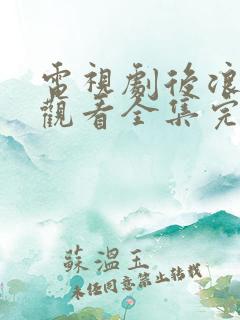 電視劇後浪
觀看全集完
蘇溫玉
未任同意禁止转載